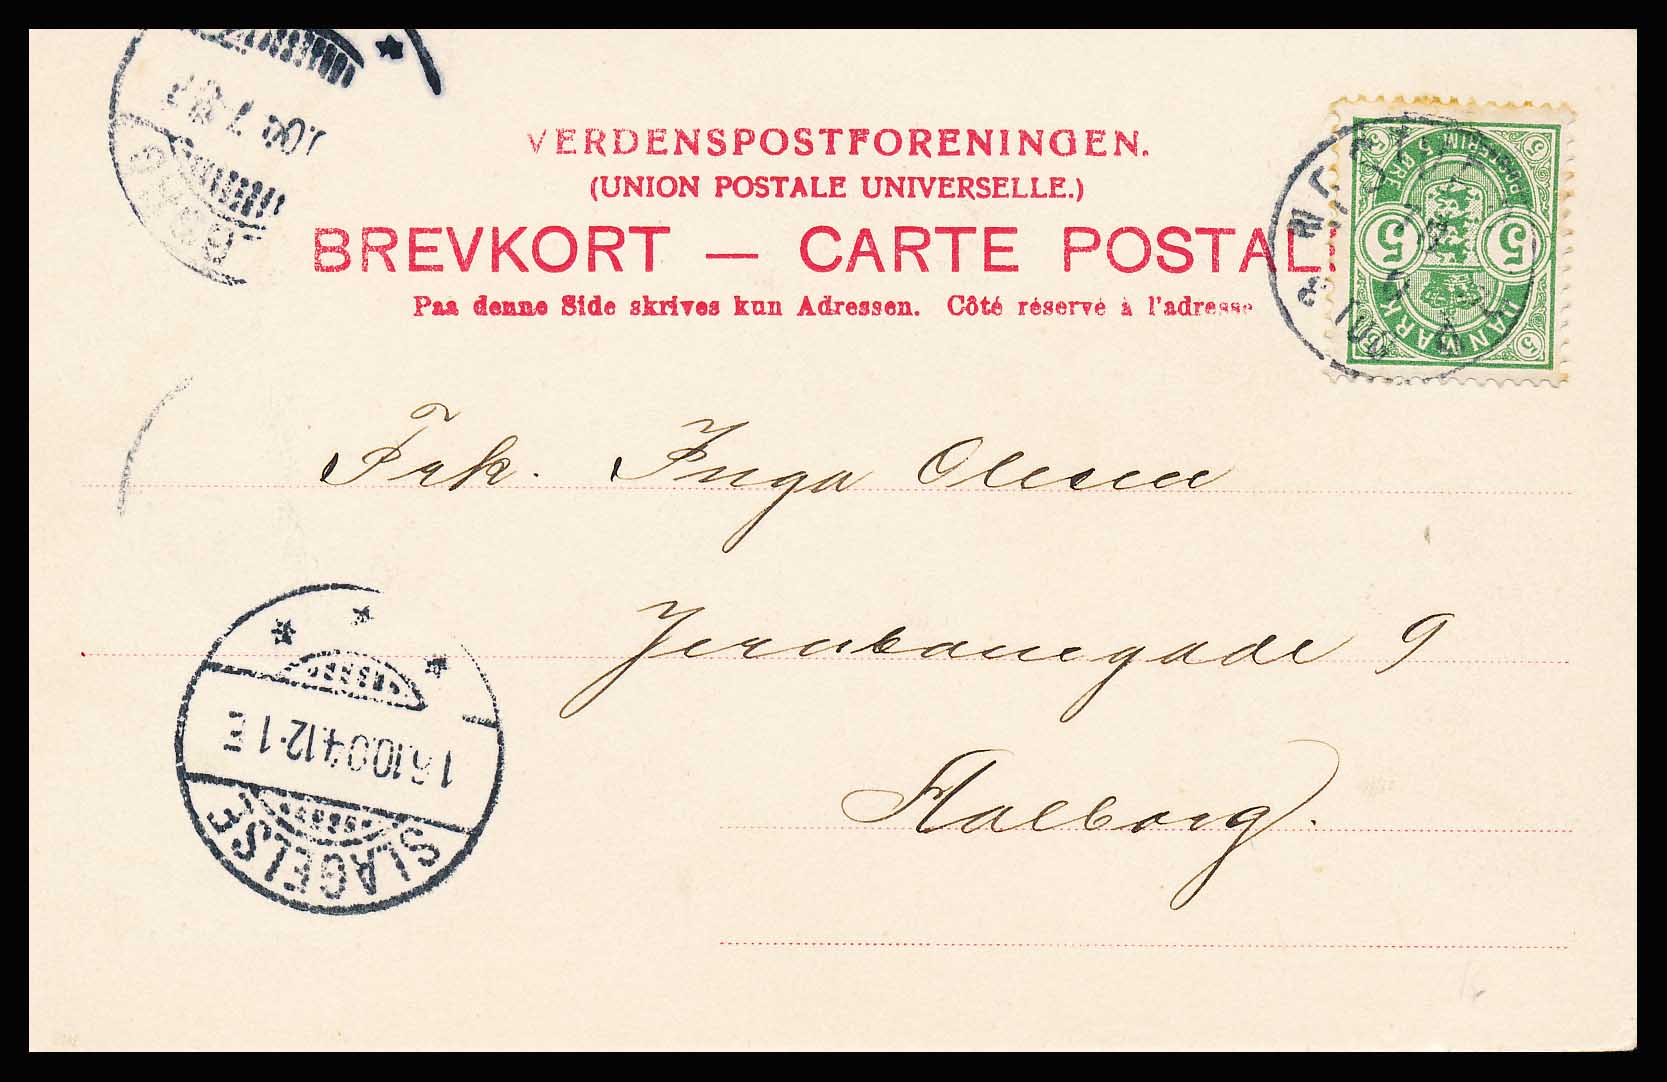 VERDENSPOSTFORENINGEN.
(UNION POSTALE UNIVERSELLE.)
BREVKORT — CARTE POSTAL
Paa denne Side skrives kun Adressen. Côté réservé à l'adresse
DANMARK
POSTFRIM. 5 ØRE
5 5
Frk. Inga Olesen
Jernbanegade 9
Aalborg.
16.10.04.12-1 E
SLAGELSE